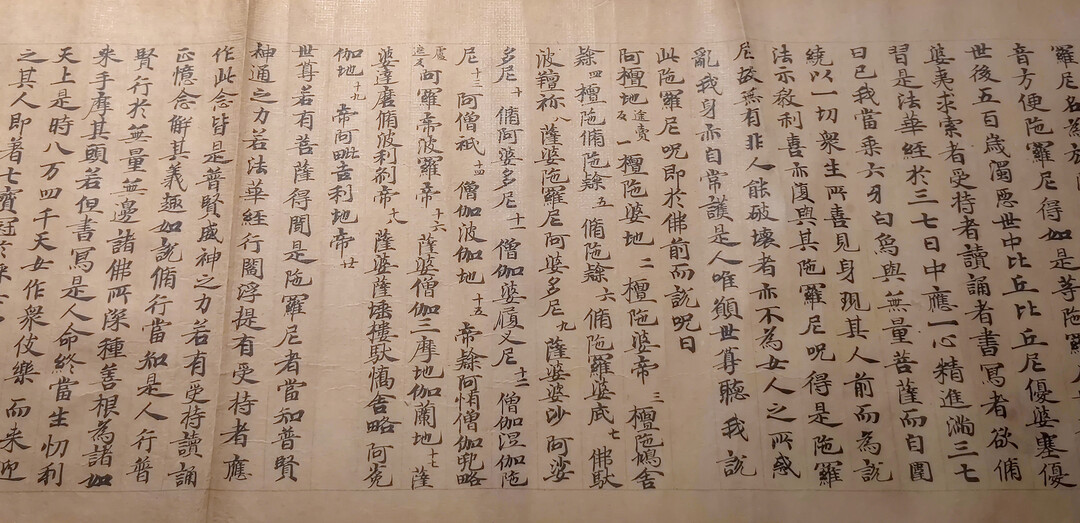 羅尼名為旋
音方便陁羅尼得如是等陁羅
世後五百歲濁惡世中比丘比丘尼優婆塞優
婆夷求索者受持者讀誦者書寫者欲脩
習是法華經於三七日中應一心精進滿三七
日已我當乘六牙白象與無量菩薩而自圍
繞以一切衆生所喜見身現其人前而為說
法示教利喜亦復與其陁羅尼呪得是陁羅
尼故無有非人能破壞者亦不為女人之所惑
亂我身亦自常護是人唯願世尊聽我說
此陁羅尼呪即於佛前而說呪曰
阿檀地途賣反一檀陁婆地二檀陁婆帝三檀陁鳩舍
隸四檀陁脩陁隸五脩陁隸六脩陁羅婆底七佛馱
波羶祢八薩婆陁羅尼阿婆多尼九薩婆婆沙阿娑
多尼十脩阿婆多尼十一僧伽婆履叉尼十二僧伽涅伽陁
尼十三阿僧祇十四僧伽波伽地十五帝隸阿惰僧伽兜略
盧遮反阿羅帝波羅帝十六薩婆僧伽三摩地伽蘭地十七薩
婆達磨脩波利剎帝十八薩婆薩埵樓馱憍舍略阿㝹
伽地十九帝阿毗吉利地帝廿
世尊若有菩薩得聞是陁羅尼者當知普賢
神通之力若法華經行閻浮提有受持者應
作此念皆是普賢威神之力若有受持讀誦
正憶念解其義趣如說脩行當知是人行普
賢行於無量無邊諸佛所深種善根為諸如
来手摩其頭若但書寫是人命終當生忉利
天上是時八万四千天女作衆伎樂而来迎
之其人即著七寶冠於采